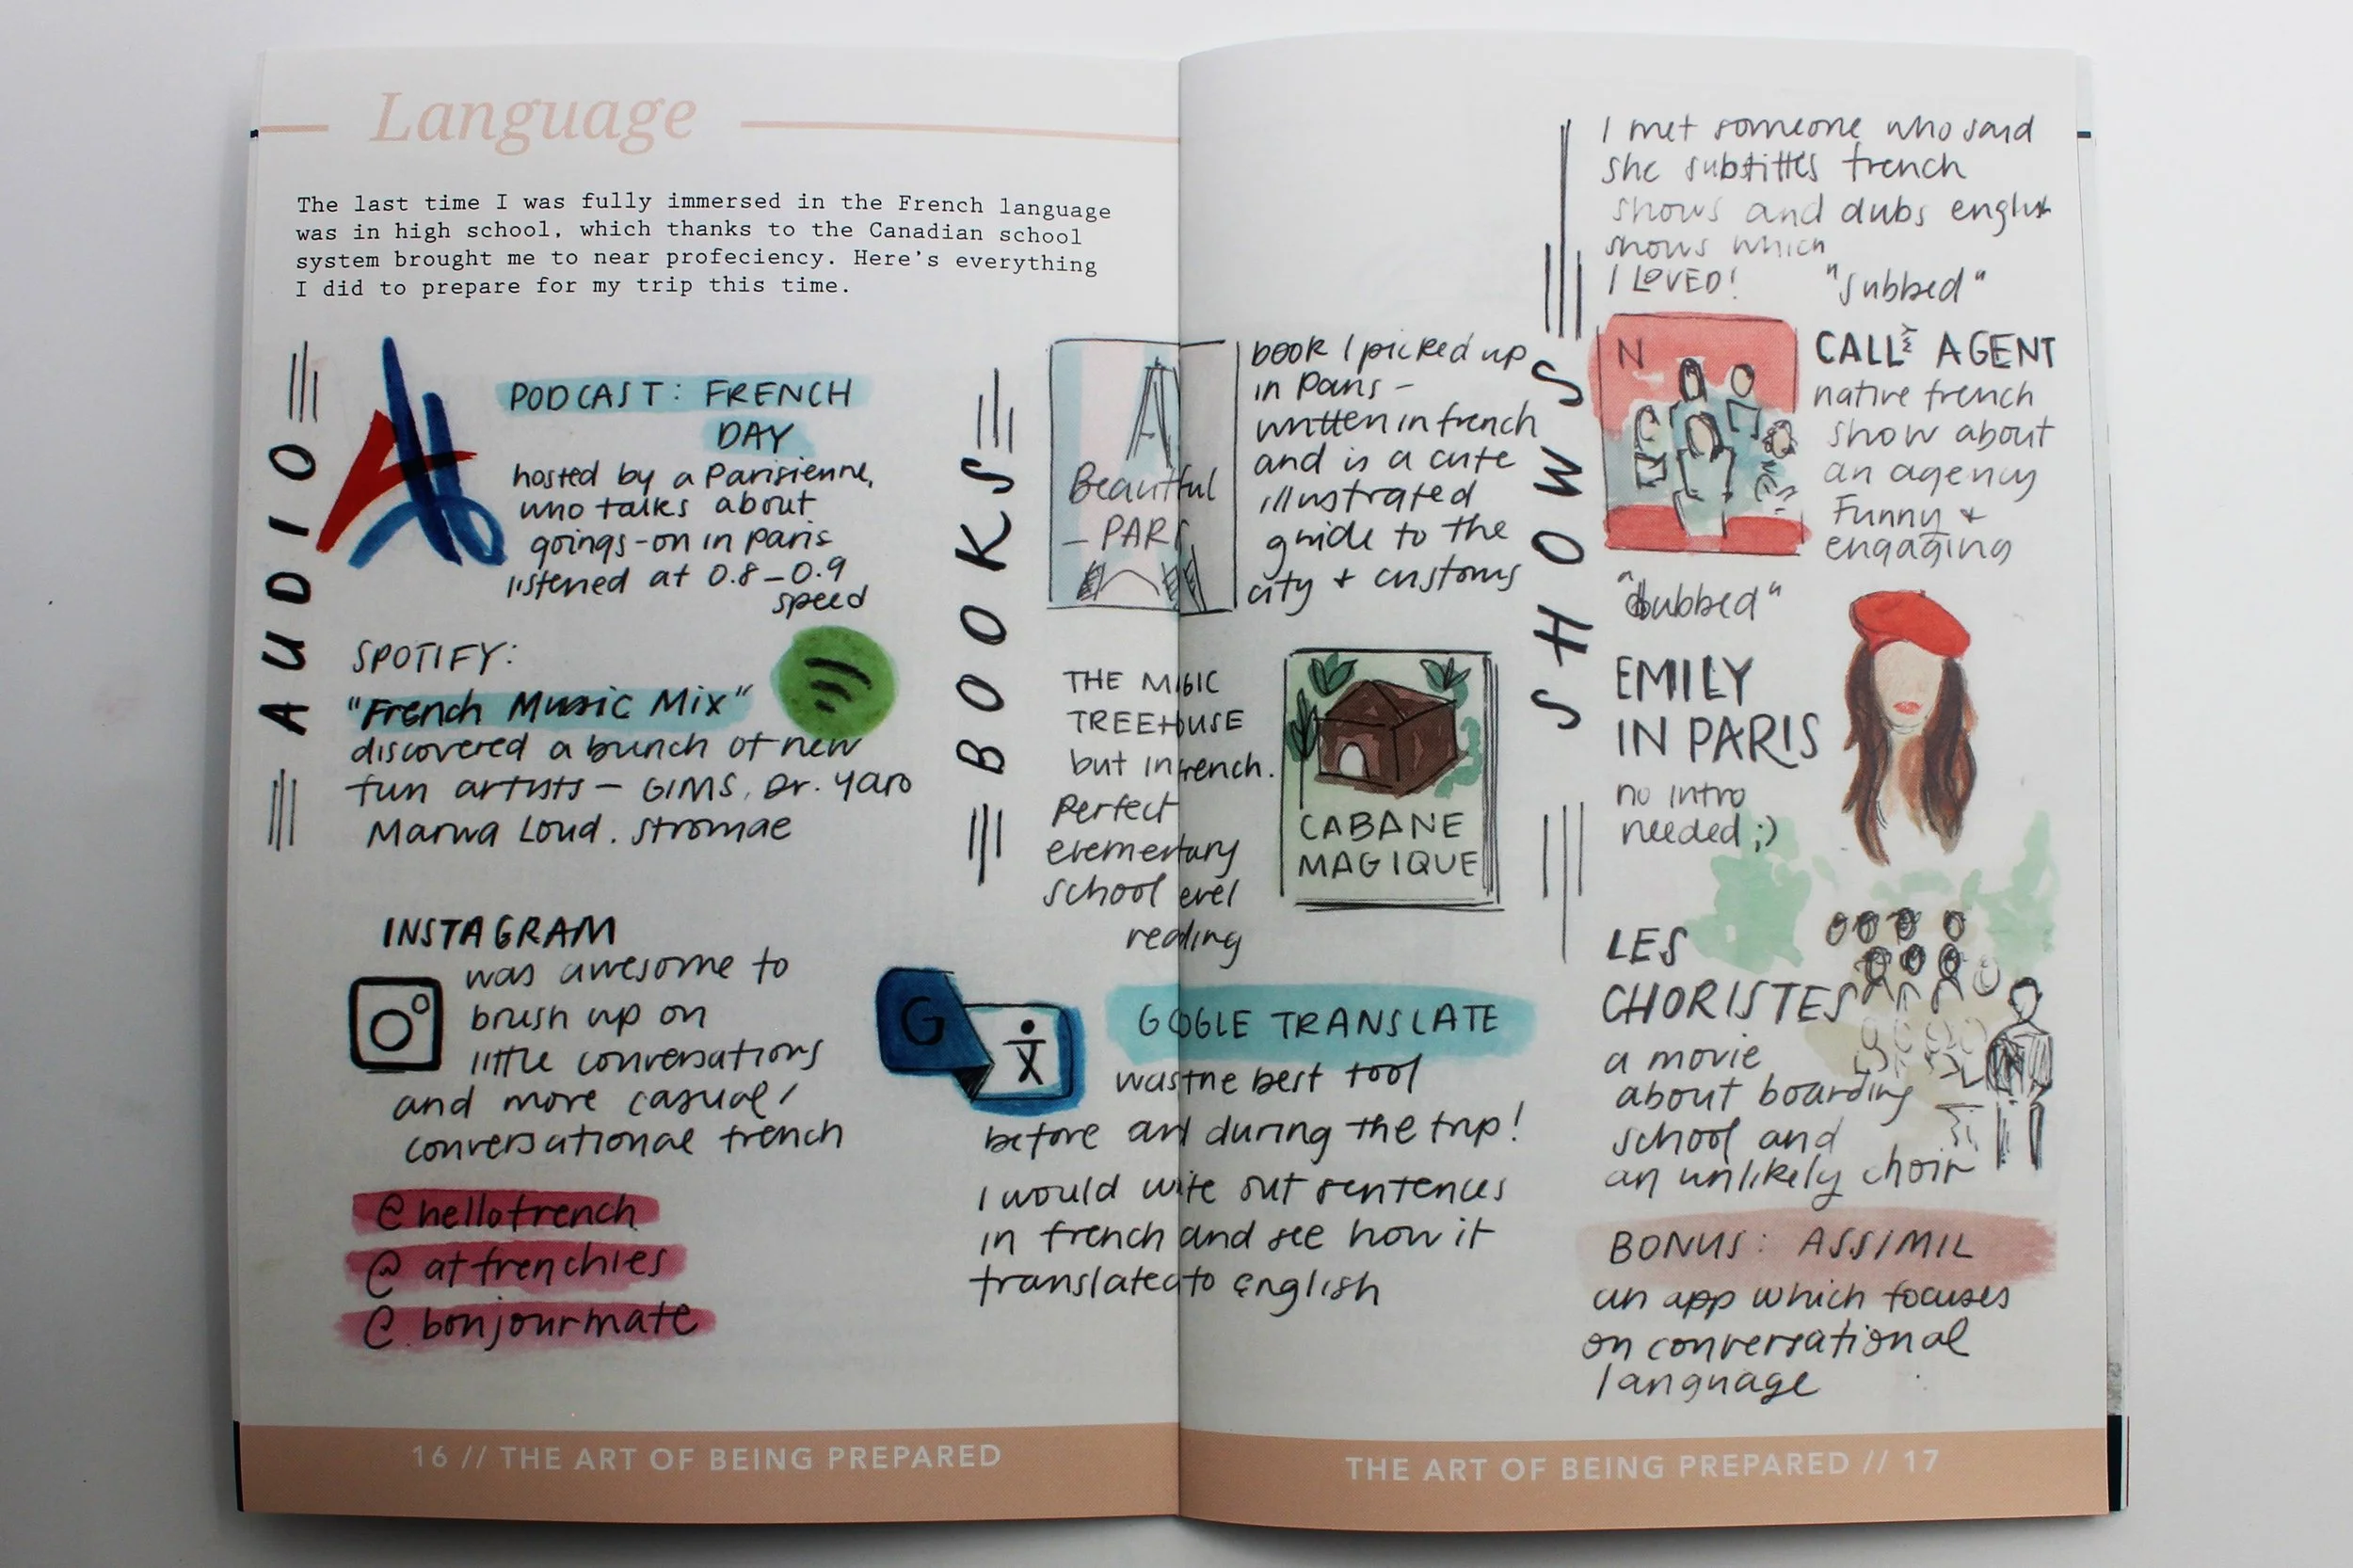 Language
The last time I was fully immersed in the French language
was in high school, which thanks to the Canadian school
system brought me to near profeciency. Here's everything
I did to prepare for my trip this time.
AUDIO
PODCAST: FRENCH
DAY
hosted by a Parisienne,
who talks about
goings-on in paris
listened at 0.8-0.9
speed
SPOTIFY:
"French Music Mix"
discovered a bunch of new
fun artists - GIMS, Dr. Yaro
Marwa Loud. Stromae
INSTAGRAM
was awesome to
brush up on
little conversations
and more casual/
conversational french
@hellofrench
@atfrenchies
@bonjourmate
BOOKS
Beautiful
PARIS
book I picked up
in Paris -
written in french
and is a cute
illustrated
guide to the
city + customs
THE MAGIC
TREEHOUSE
but in french.
Perfect
elementary
school level
reading
CABANE
MAGIQUE
G
GOOGLE TRANSLATE
was the best tool
before and during the trip!
I would write out sentences
in french and see how it
translated to english
SHOWS
I met someone who said
she subtitles french
shows and dubs english
shows which
I LOVED!
"subbed"
N
CALL MY AGENT
native french
show about
an agency
Funny +
engaging
"dubbed"
EMILY
IN PARIS
no intro
needed ;)
LES
CHORISTES
a movie
about boarding
school and
an unlikely choir
BONUS: ASSIMIL
an app which focuses
on conversational
language
16 // THE ART OF BEING PREPARED
THE ART OF BEING PREPARED // 17